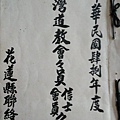 華民國肆拾年度
灣道教會々員信士會員名
花蓮縣聯絡